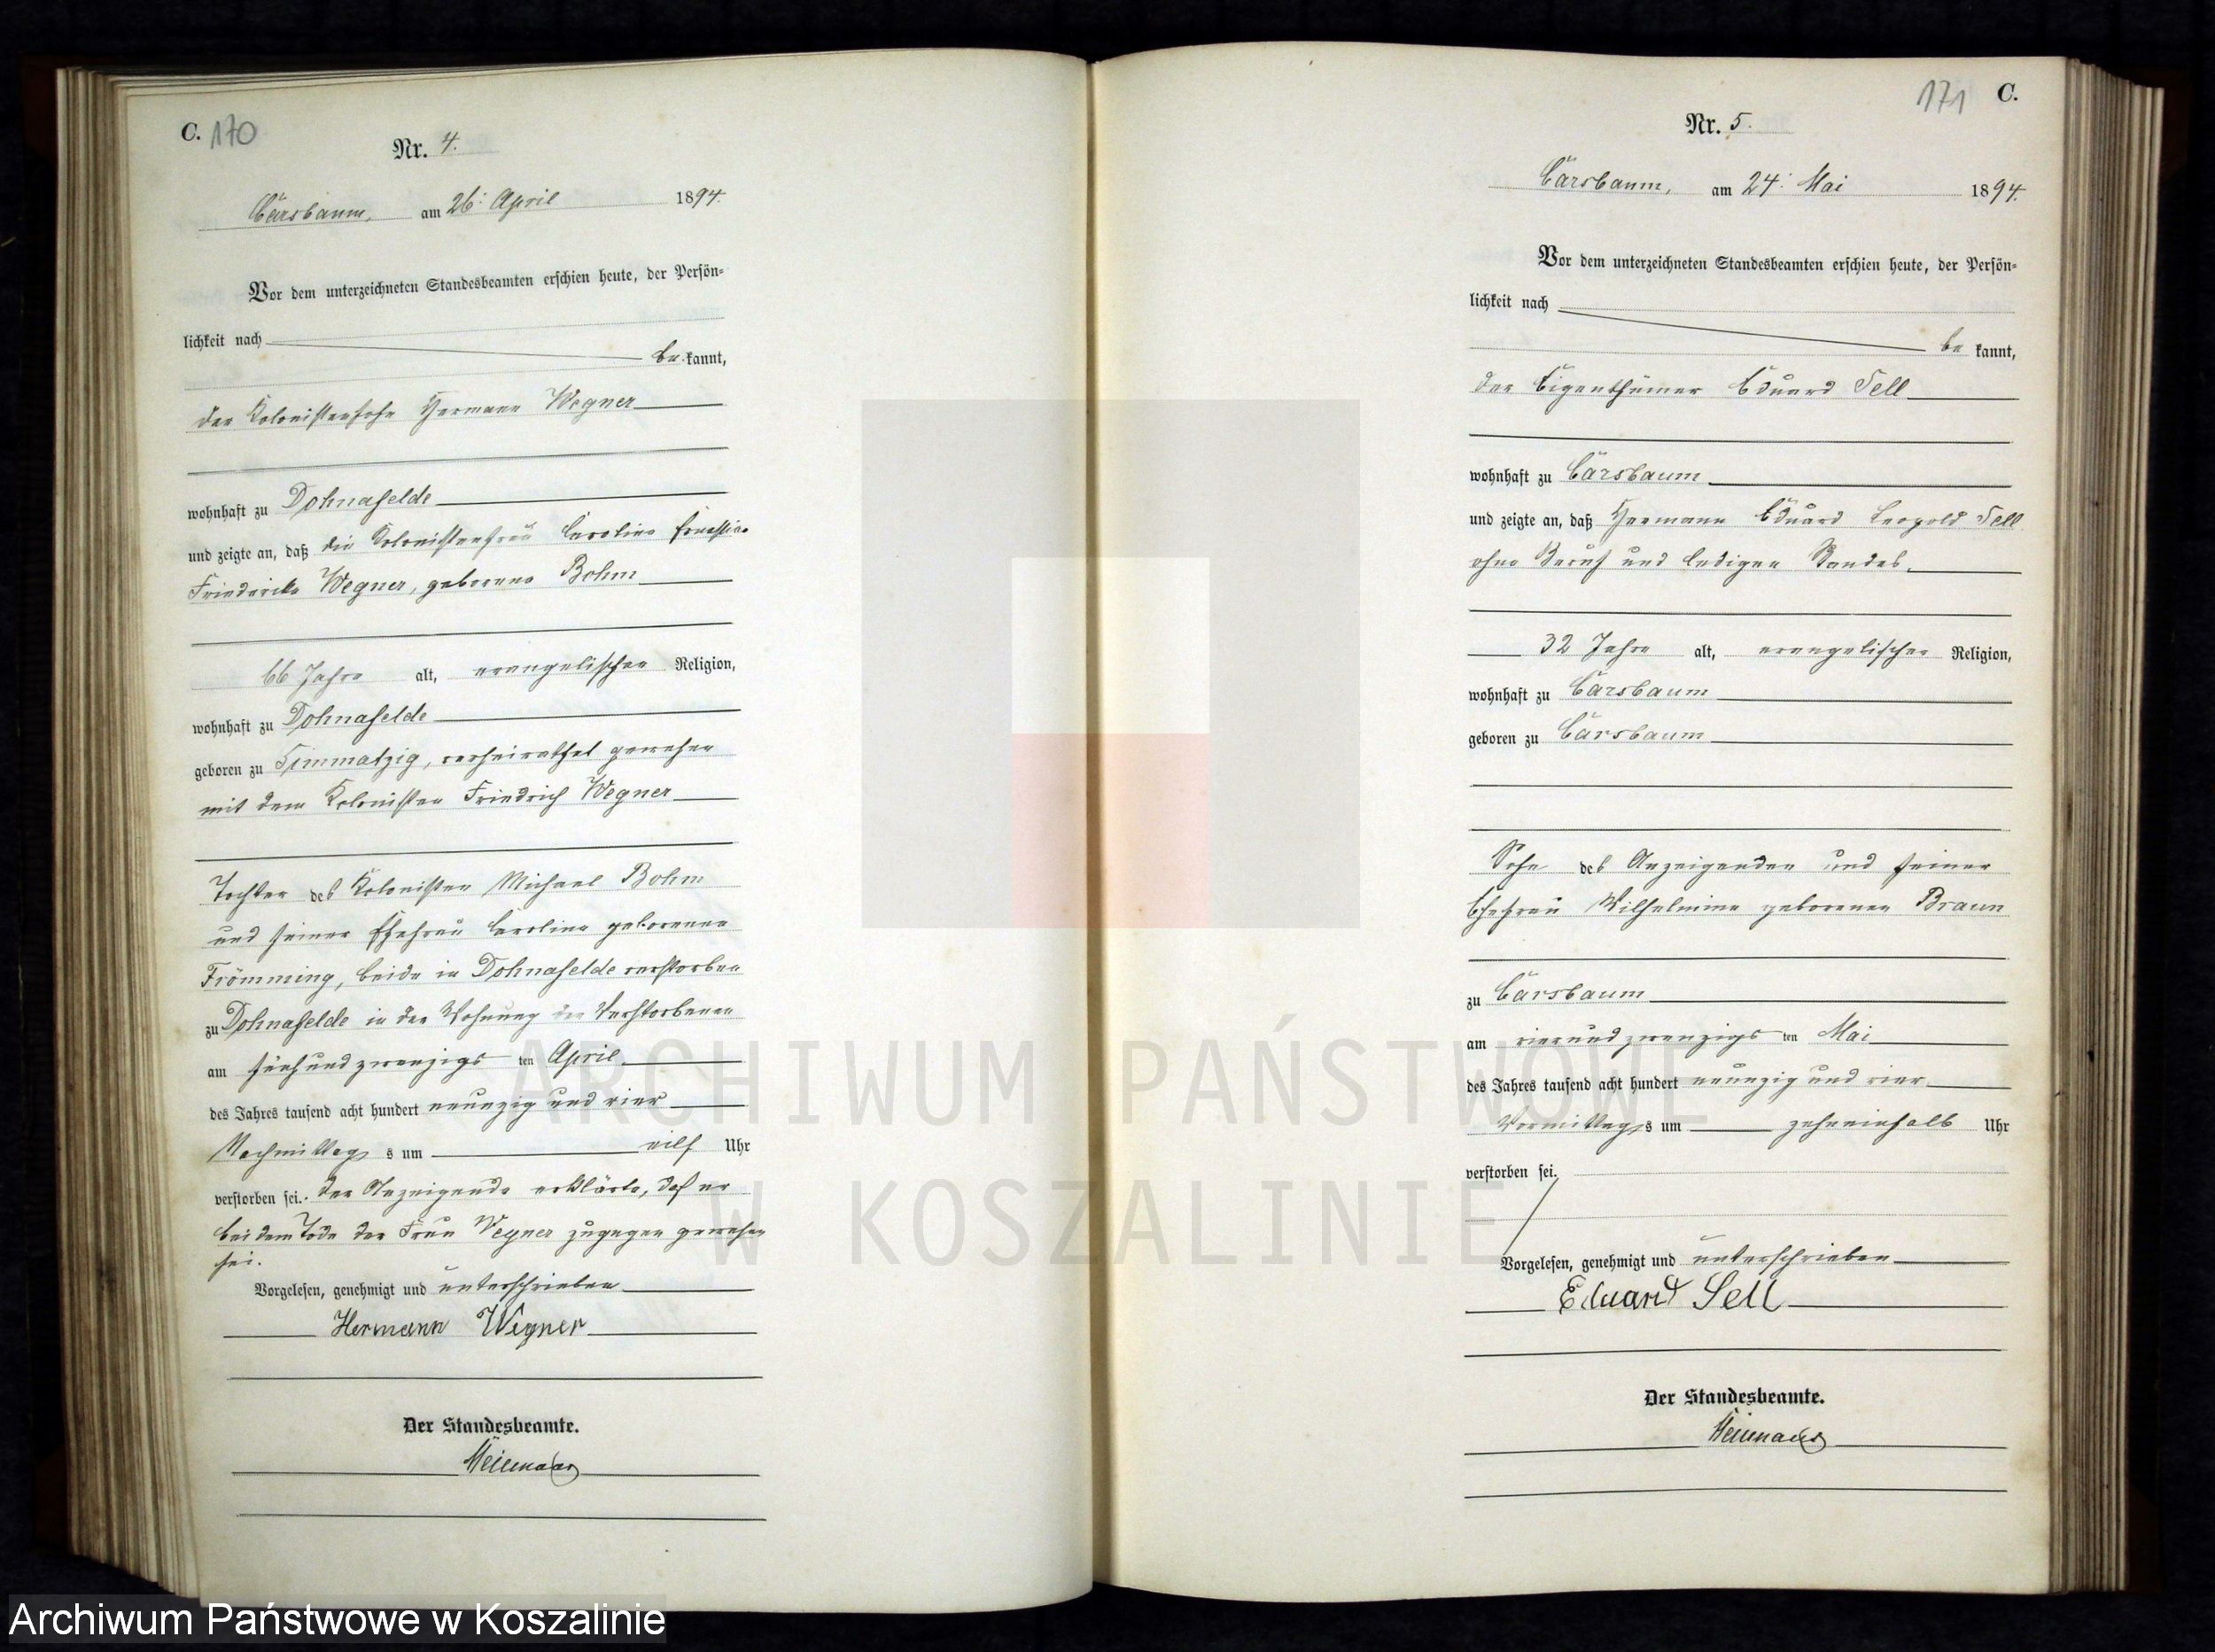 C. 170
Nr. 4.
Carsbaum, am 26. April 1894.
Vor dem unterzeichneten Standesbeamten erschien heute, der Persön-
lichkeit nach
be kannt,
der Kolonistensohn Hermann Wegner
wohnhaft zu Dohnafelde
und zeigte an, daß die Kolonistenfrau Caroline Ernestine
Friedericke Wegner, geborene Bohm
66 Jahre alt, evangelischer Religion,
wohnhaft zu Dohnafelde
geboren zu Simmatzig, verheirathet gewesen
mit dem Kolonisten Friedrich Wegner
Tochter des Kolonisten Michael Bohm
und seiner Ehefrau Caroline geborenen
Frömming, beide in Dohnafelde verstorben
zu Dohnafelde in der Wohnung der Verstorbenen
am fünfundzwanzigs ten April
des Jahres tausend acht hundert neunzig und vier
Nachmittags um eilf Uhr
verstorben sei. Der Anzeigende erklärte, daß er
bei dem Tode der Frau Wegner zugegen gewesen
sei.
Vorgelesen, genehmigt und unterschrieben
Hermann Wegner
Der Standesbeamte.
171 C.
Nr. 5.
Carsbaum, am 24. Mai 1894.
Vor dem unterzeichneten Standesbeamten erschien heute, der Persön-
lichkeit nach
be kannt,
der Eigenthümer Eduard Sell
wohnhaft zu Carsbaum
und zeigte an, daß Hermann Eduard Leopold Sell
ohne Beruf und ledigen Standes,
32 Jahre alt, evangelischer Religion,
wohnhaft zu Carsbaum
geboren zu Carsbaum
Sohn des Anzeigenden und seiner
Ehefrau Wilhelmine geborenen Braun
zu Carsbaum
am vierundzwanzigs ten Mai
des Jahres tausend acht hundert neunzig und vier
Vormittags um zehneinhalb Uhr
verstorben sei.
Vorgelesen, genehmigt und unterschrieben
Eduard Sell
Der Standesbeamte.
ARCHIWUM PAŃSTWOWE
W KOSZALINIE
Archiwum Państwowe w Koszalinie